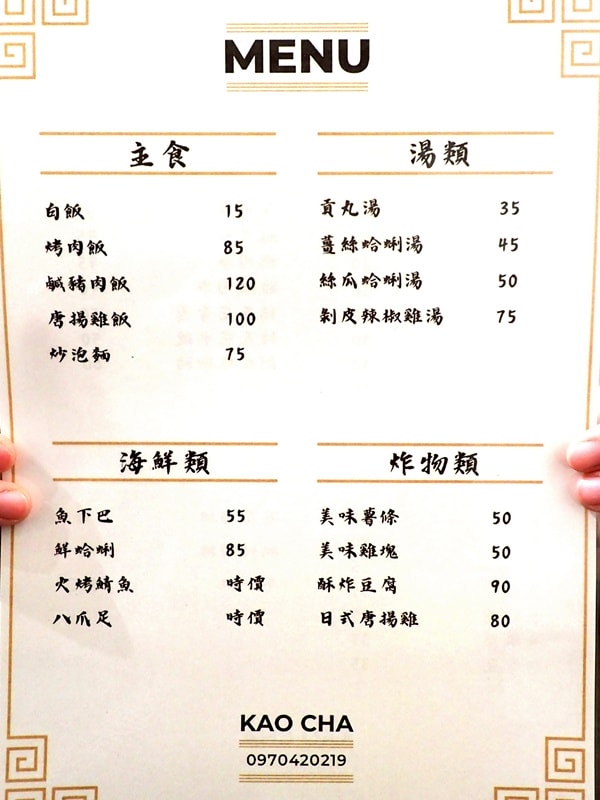 MENU
主食
白飯 15
烤肉飯 85
鹹豬肉飯 120
唐揚雞飯 100
炒泡麵 75
湯類
貢丸湯 35
薑絲蛤蜊湯 45
絲瓜蛤蜊湯 50
剝皮辣椒雞湯 75
海鮮類
魚下巴 55
鮮蛤蜊 85
火烤鯖魚 時價
八爪足 時價
炸物類
美味薯條 50
美味雞塊 50
酥炸豆腐 90
日式唐揚雞 80
KAO CHA
0970420219